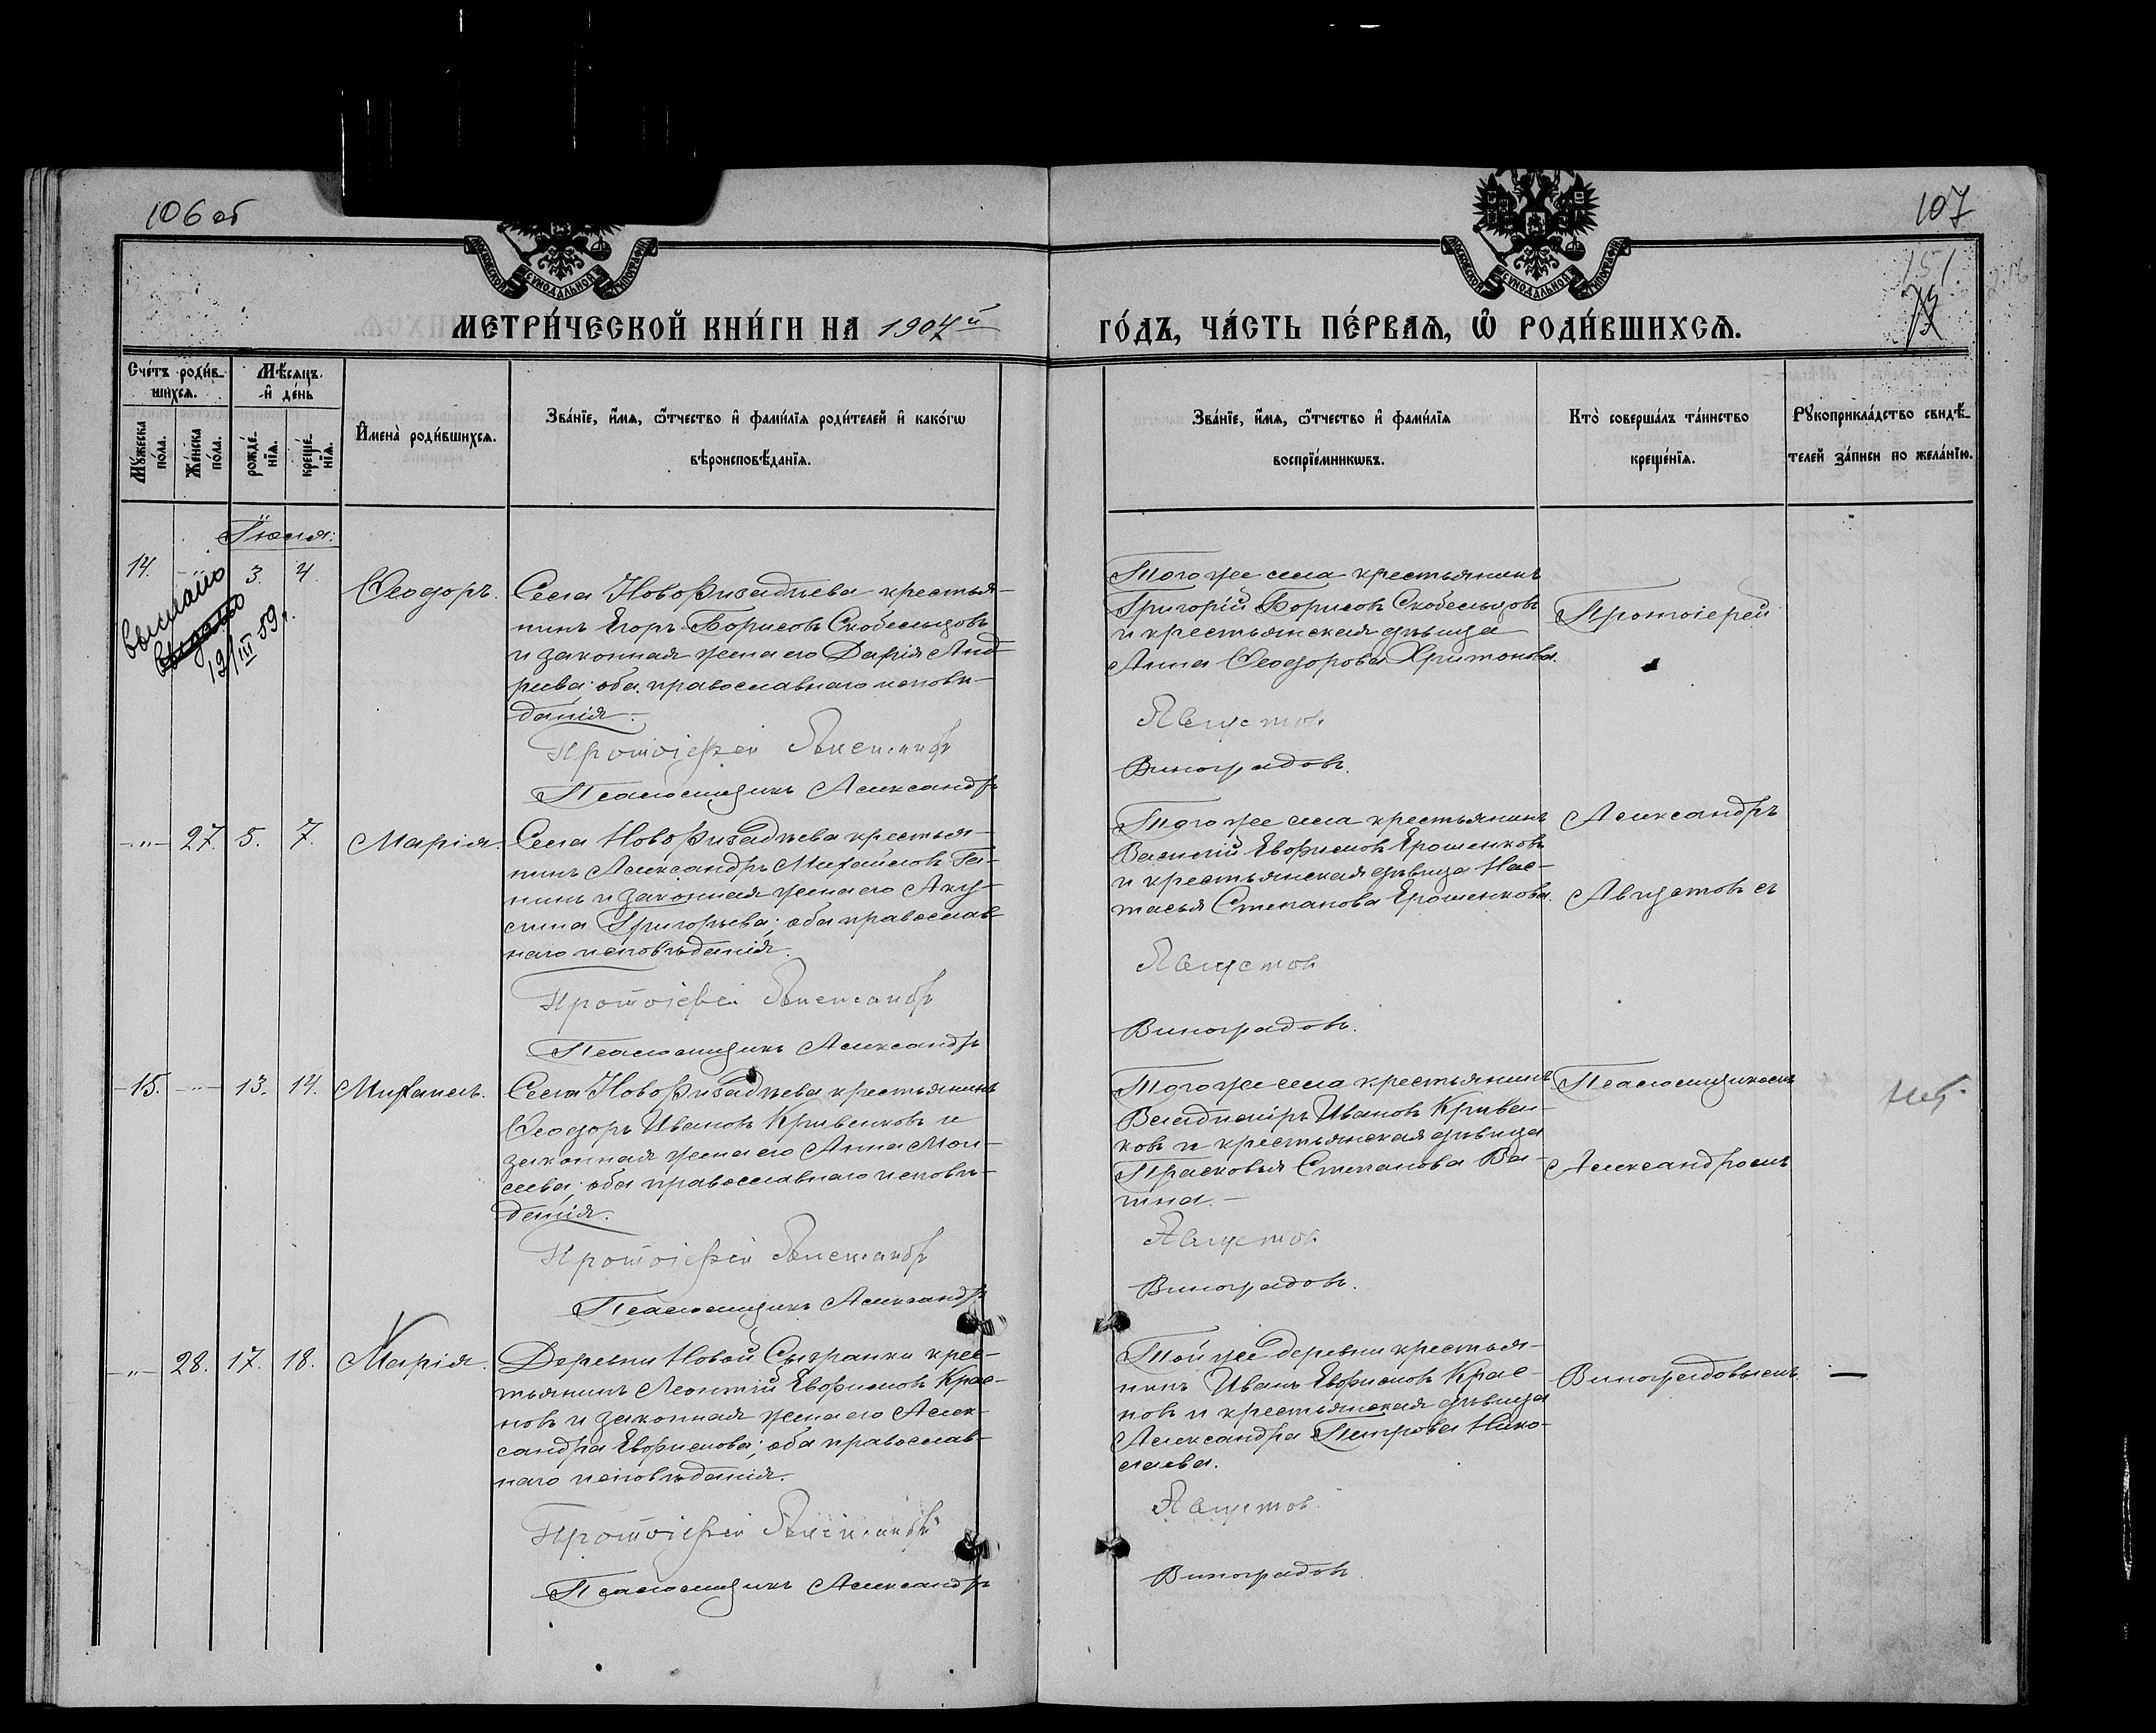 106 об
107
151
73
МОСКОВСКОЙ СѴНОДАЛЬНОЙ ТИПОГРАФІИ
МОСКОВСКОЙ СѴНОДАЛЬНОЙ ТИПОГРАФІИ
МЕТРИ́ЧЕСКОЙ КНИ́ГИ НА 1904й
ГО́ДЪ, ЧА́СТЬ ПЕ́РВАЯ, Ѡ҆ РОДИ́ВШИХСЯ.
Сче́тъ роди́в-
шихся.
Мѣ́сяцъ
и҆ де́нь
Му́жеска
по́ла.
Же́нска
по́ла.
рожде́-
нїя.
креще́-
нїя.
И҆мена̀ роди́вшихся.
Зва́нїе, и҆́мя, ѻ҆́тчество и҆ фами́лїя роди́телей и҆ како́гѡ
вѣроисповѣ́данїя.
Зва́нїе, и҆́мя, ѻ҆́тчество и҆ фами́лїя
воспрїе́мникѡвъ.
Кто̀ соверша́лъ та́инство
креще́нїя.
Рꙋкоприкла́дство свидѣ́-
телей за́писи по жела́нїю.
Іюня:
14. -"- 3. 4. Ѳеодоръ.
выслано
выдано
19/III 59 г.
Села Новофизадѣева крестья-
нинъ Егоръ Борисовъ Скобельцовъ
и законная жена его Дарія Анд-
реева; оба православнаго исповѣ-
данія.-
Протоіерей Александръ
Псаломщикъ Александръ
Того же села крестьянинъ
Григорій Борисовъ Скобельцовъ
и крестьянская дѣвица
Анна Ѳеодорова Харитонова.
Августов
Виноградовъ.
Протоіерей
-"- 27. 5. 7. Марія.
Села Новофизадѣева крестья-
нинъ Александръ Михайловъ Га-
нинъ и законная жена его Аку-
лина Григорьева; оба православ-
наго исповѣданія.
Протоіерей Александръ
Псаломщикъ Александръ
Того же села крестьянинъ
Василій Евфимовъ Ерошенковъ
и крестьянская дѣвица Нас-
тасья Степанова Ерошенкова.
Августов
Виноградовъ.
Александръ
Августовъ съ
15. -"- 13. 14. Михаилъ.
Села Новофизадѣева крестьянинъ
Ѳеодоръ Ивановъ Кривенковъ и
законная жена его Анна Мои-
сеева; оба православнаго исповѣ-
данія.
Протоіерей Александръ
Псаломщикъ Александръ
Того же села крестьянинъ
Владиміръ Ивановъ Кривен-
ковъ и крестьянская дѣвица
Прасковья Степанова Ва-
тна.-
Августов
Виноградовъ.
Псаломщикомъ
Александромъ
-"- 28. 17. 18. Марія.
Деревни Новой Сызранки крес-
тьянинъ Леонтій Евфимовъ Крас-
новъ и законная жена его Алек-
сандра Евфимова; оба православ-
наго исповѣданія.
Протоіерей Александръ
Псаломщикъ Александръ
Той же деревни крестья-
нинъ Иванъ Евфимовъ Крас-
новъ и крестьянская дѣвица
Александра Петрова Нико-
лаева.
Августов
Виноградовъ.
Виноградовымъ.